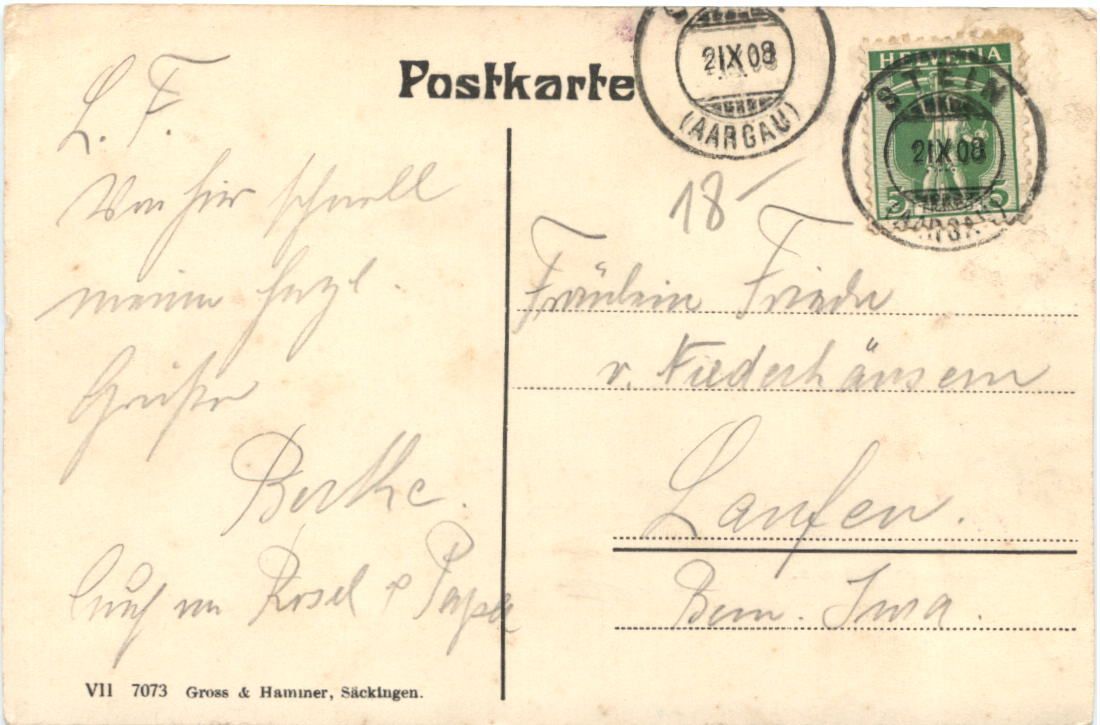 Postkarte
21 IX 08
(AARGAU)
HELVETIA
STEIN
21 IX 08
(AARGAU)
5 5
18
L. F.
Von hier schnell
meine herzl.
Grüße
Berthe.
Auch an Rosel & Papa
Fräulein Frieda
v. Niederhäusern
Laufen.
Bern. Jura.
VII 7073 Gross & Hammer, Säckingen.